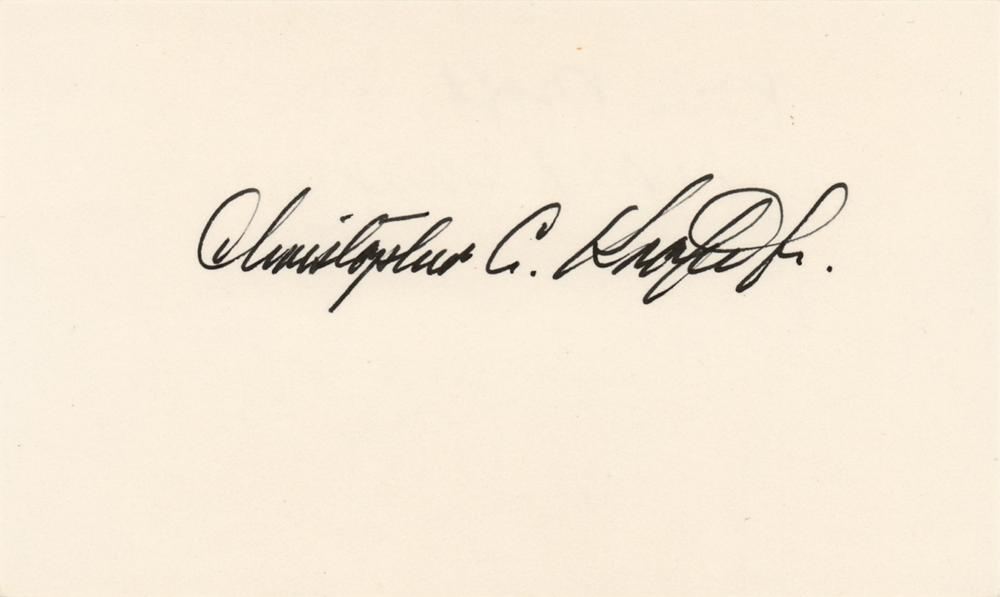 Christopher C. Kraft Jr.